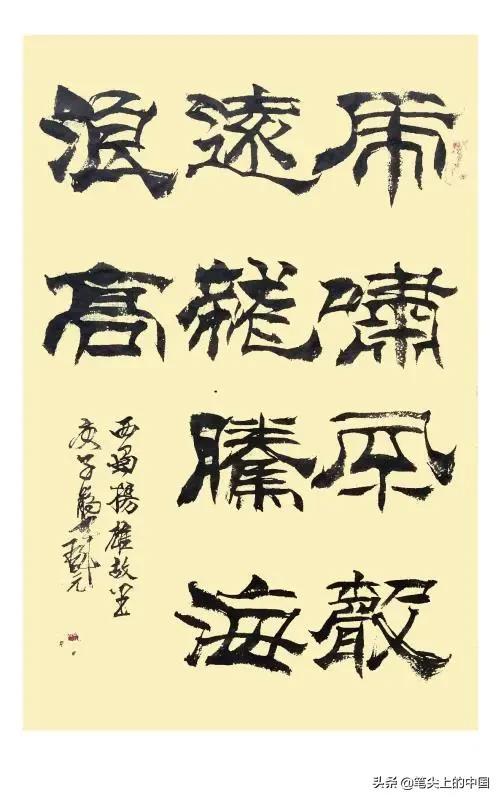 虎嘯風聲
遠龍騰海
浪高
西蜀揚雄故里
庚子元
头条 @笔尖上的中国